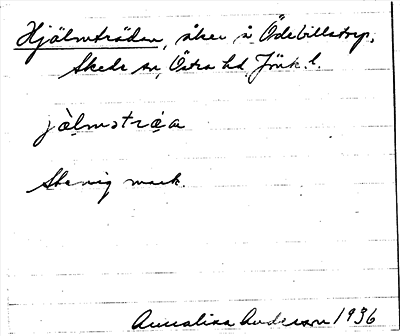 Hjälmträdan, åker å Ödebillstorp,
Skede sn, Östra hd, Jönk. l.
jälmstráa
Stenig mark.
Annalisa Anderson 1936